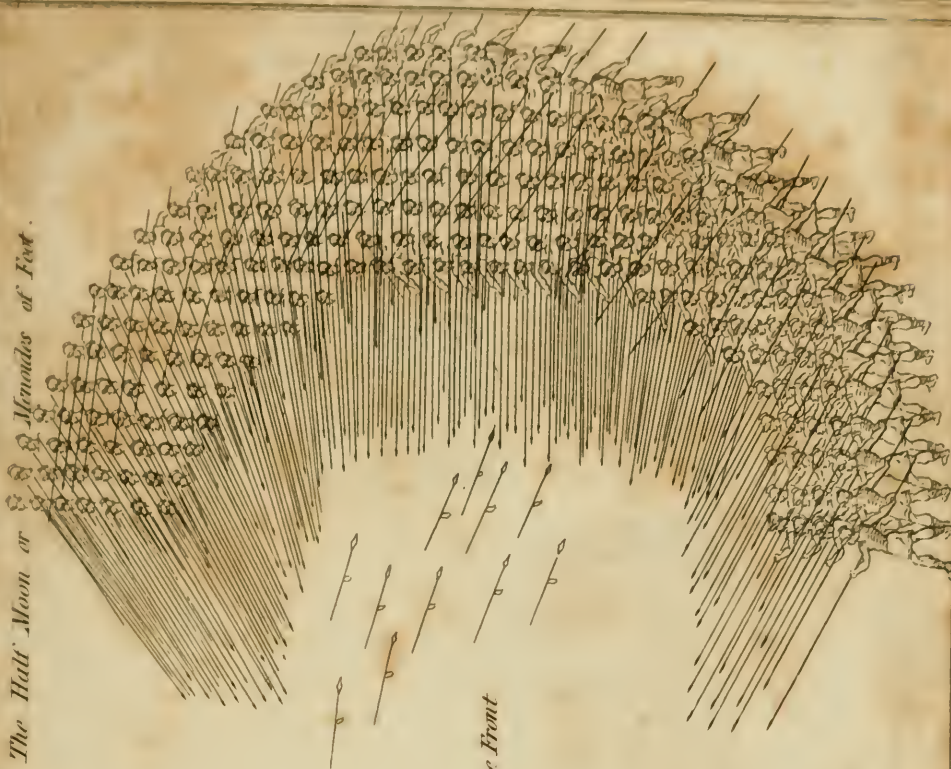 The Half Moon or Menoides of Foot.
Front